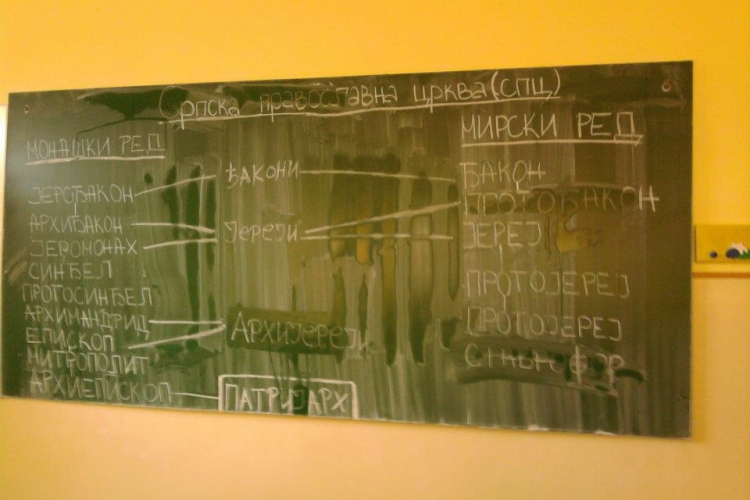 Српска православна црква (СПЦ)
МОНАШКИ РЕД
ЈЕРОЂАКОН
АРХИЂАКОН
ЈЕРОМОНАХ
СИНЂЕЛ
ПРОТОСИНЂЕЛ
АРХИМАНДРИД
ЕПИСКОП
МИТРОПОЛИТ
АРХИЕПИСКОП
ЂАКОНИ
Јереји
Архијереји
ПАТРИЈАРХ
МИРСКИ РЕД
ЂАКОН
ПРОТОЂАКОН
ЈЕРЕЈ
ПРОТОЈЕРЕЈ
ПРОТОЈЕРЕЈ